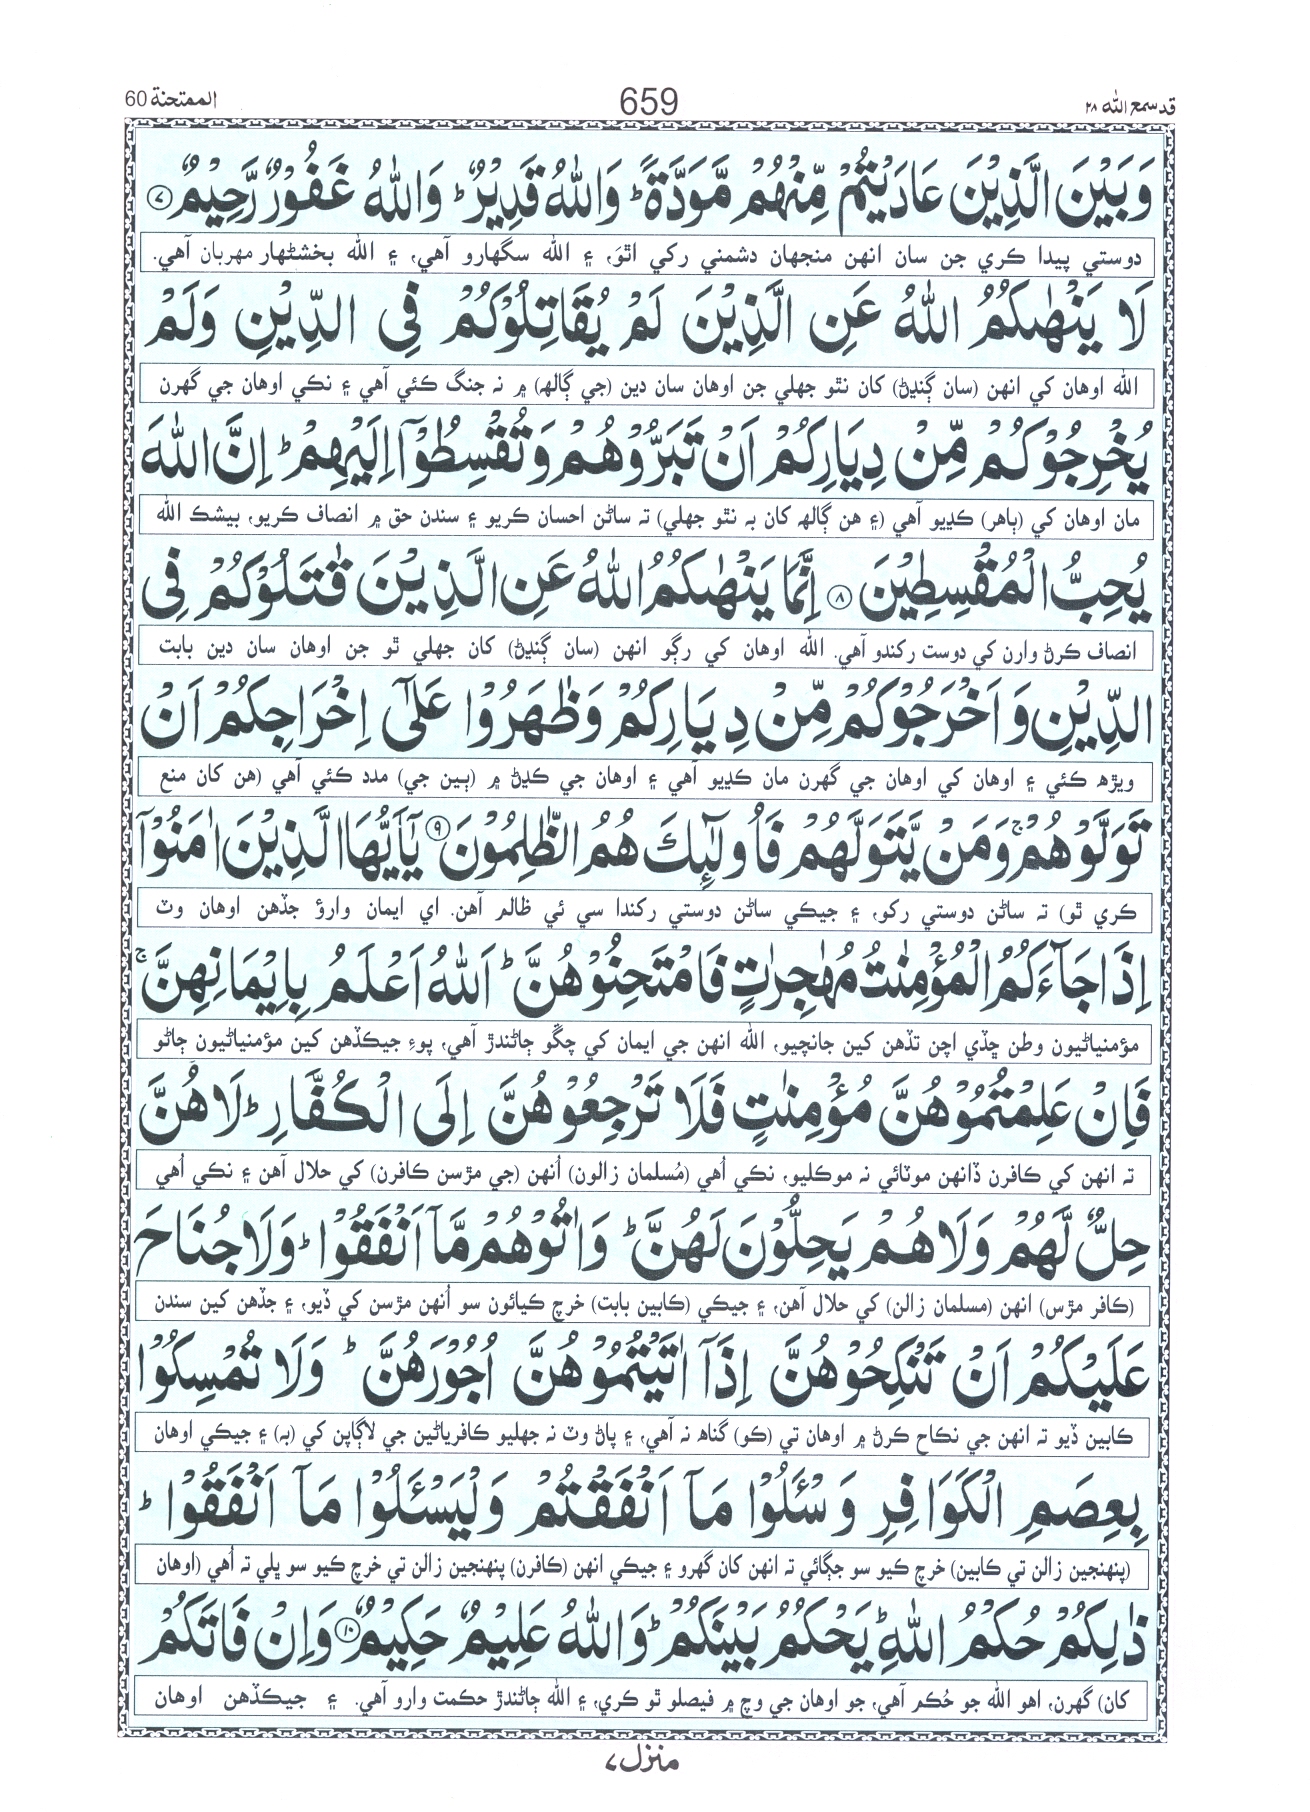 قد سمع الله ٢٨
659
الممتحنة 60
وَبَيْنَ الَّذِيْنَ عَادَيْتُمْ مِّنْهُمْ مَّوَدَّةً ؕ وَاللّٰهُ قَدِيْرٌ ؕ وَاللّٰهُ غَفُوْرٌ رَّحِيْمٌ ۝٧
دوستي پيدا ڪري جن سان انهن منجهان دشمني رکي اٿوَ، ۽ الله سگهارو آهي، ۽ الله بخشڻهار مهربان آهي.
لَا يَنْهٰىكُمُ اللّٰهُ عَنِ الَّذِيْنَ لَمْ يُقَاتِلُوْكُمْ فِي الدِّيْنِ وَلَمْ
الله اوهان کي انهن (سان ڳنڍڻ) کان نٿو جهلي جن اوهان سان دين (جي ڳالھ) ۾ نہ جنگ ڪئي آهي ۽ نڪي اوهان جي گهرن
يُخْرِجُوْكُمْ مِّنْ دِيَارِكُمْ اَنْ تَبَرُّوْهُمْ وَتُقْسِطُوْٓا اِلَيْهِمْ ؕ اِنَّ اللّٰهَ
مان اوهان کي (ٻاهر) ڪڍيو آهي (۽ هن ڳالھ کان بہ نٿو جهلي) تہ ساڻن احسان ڪريو ۽ سندن حق ۾ انصاف ڪريو، بيشڪ الله
يُحِبُّ الْمُقْسِطِيْنَ ۝٨ اِنَّمَا يَنْهٰىكُمُ اللّٰهُ عَنِ الَّذِيْنَ قٰتَلُوْكُمْ فِي
انصاف ڪرڻ وارن کي دوست رکندو آهي. الله اوهان کي رڳو انهن (سان ڳنڍڻ) کان جهلي ٿو جن اوهان سان دين بابت
الدِّيْنِ وَاَخْرَجُوْكُمْ مِّنْ دِيَارِكُمْ وَظٰهَرُوْا عَلٰٓى اِخْرَاجِكُمْ اَنْ
ويڙھ ڪئي ۽ اوهان کي اوهان جي گهرن مان ڪڍيو آهي ۽ اوهان جي ڪڍڻ ۾ (ٻين جي) مدد ڪئي آهي (هن کان منع
تَوَلَّوْهُمْ ۚ وَمَنْ يَّتَوَلَّهُمْ فَاُولٰٓئِكَ هُمُ الظّٰلِمُوْنَ ۝٩ يٰٓاَيُّهَا الَّذِيْنَ اٰمَنُوْٓا
ڪري ٿو) تہ ساڻن دوستي رکو، ۽ جيڪي ساڻن دوستي رکندا سي ئي ظالم آهن. اي ايمان وارؤ جڏهن اوهان وٽ
اِذَا جَآءَكُمُ الْمُؤْمِنٰتُ مُهٰجِرٰتٍ فَامْتَحِنُوْهُنَّ ؕ اَللّٰهُ اَعْلَمُ بِاِيْمَانِهِنَّ ۚ
مؤمنياڻيون وطن ڇڏي اچن تڏهن کين جانچيو، الله انهن جي ايمان کي چڱو ڄاڻندڙ آهي، پوءِ جيڪڏهن کين مؤمنياڻيون ڄاڻو
فَاِنْ عَلِمْتُمُوْهُنَّ مُؤْمِنٰتٍ فَلَا تَرْجِعُوْهُنَّ اِلَى الْكُفَّارِ ؕ لَا هُنَّ
تہ انهن کي ڪافرن ڏانهن موٽائي نہ موڪليو، نڪي اُهي (مُسلمان زالون) اُنهن (جي مڙسن ڪافرن) کي حلال آهن ۽ نڪي اُهي
حِلٌّ لَّهُمْ وَلَا هُمْ يَحِلُّوْنَ لَهُنَّ ؕ وَاٰتُوْهُمْ مَّآ اَنْفَقُوْا ؕ وَلَا جُنَاحَ
(ڪافر مڙس) انهن (مسلمان زالن) کي حلال آهن، ۽ جيڪي (ڪابين بابت) خرچ ڪيائون سو اُنهن مڙسن کي ڏيو، ۽ جڏهن کين سندن
عَلَيْكُمْ اَنْ تَنْكِحُوْهُنَّ اِذَآ اٰتَيْتُمُوْهُنَّ اُجُوْرَهُنَّ ؕ وَلَا تُمْسِكُوْا
ڪابين ڏيو تہ انهن جي نڪاح ڪرڻ ۾ اوهان تي (ڪو) گناھ نہ آهي، ۽ پاڻ وٽ نہ جهليو ڪافرياڻين جي لاڳاپن کي (بہ) ۽ جيڪي اوهان
بِعِصَمِ الْكَوَافِرِ وَسْـَٔلُوْا مَآ اَنْفَقْتُمْ وَلْيَسْـَٔلُوْا مَآ اَنْفَقُوْا ؕ
(پنهنجين زالن تي ڪابين) خرچ ڪيو سو جڳائي تہ انهن کان گهرو ۽ جيڪي انهن (ڪافرن) پنهنجين زالن تي خرچ ڪيو سو ڀلي تہ اُهي (اوهان
ذٰلِكُمْ حُكْمُ اللّٰهِ ؕ يَحْكُمُ بَيْنَكُمْ ؕ وَاللّٰهُ عَلِيْمٌ حَكِيْمٌ ۝١٠ وَاِنْ فَاتَكُمْ
کان) گهرن، اهو الله جو حُڪم آهي، جو اوهان جي وچ ۾ فيصلو ٿو ڪري، ۽ الله ڄاڻندڙ حڪمت وارو آهي. ۽ جيڪڏهن اوهان
منزل ٧